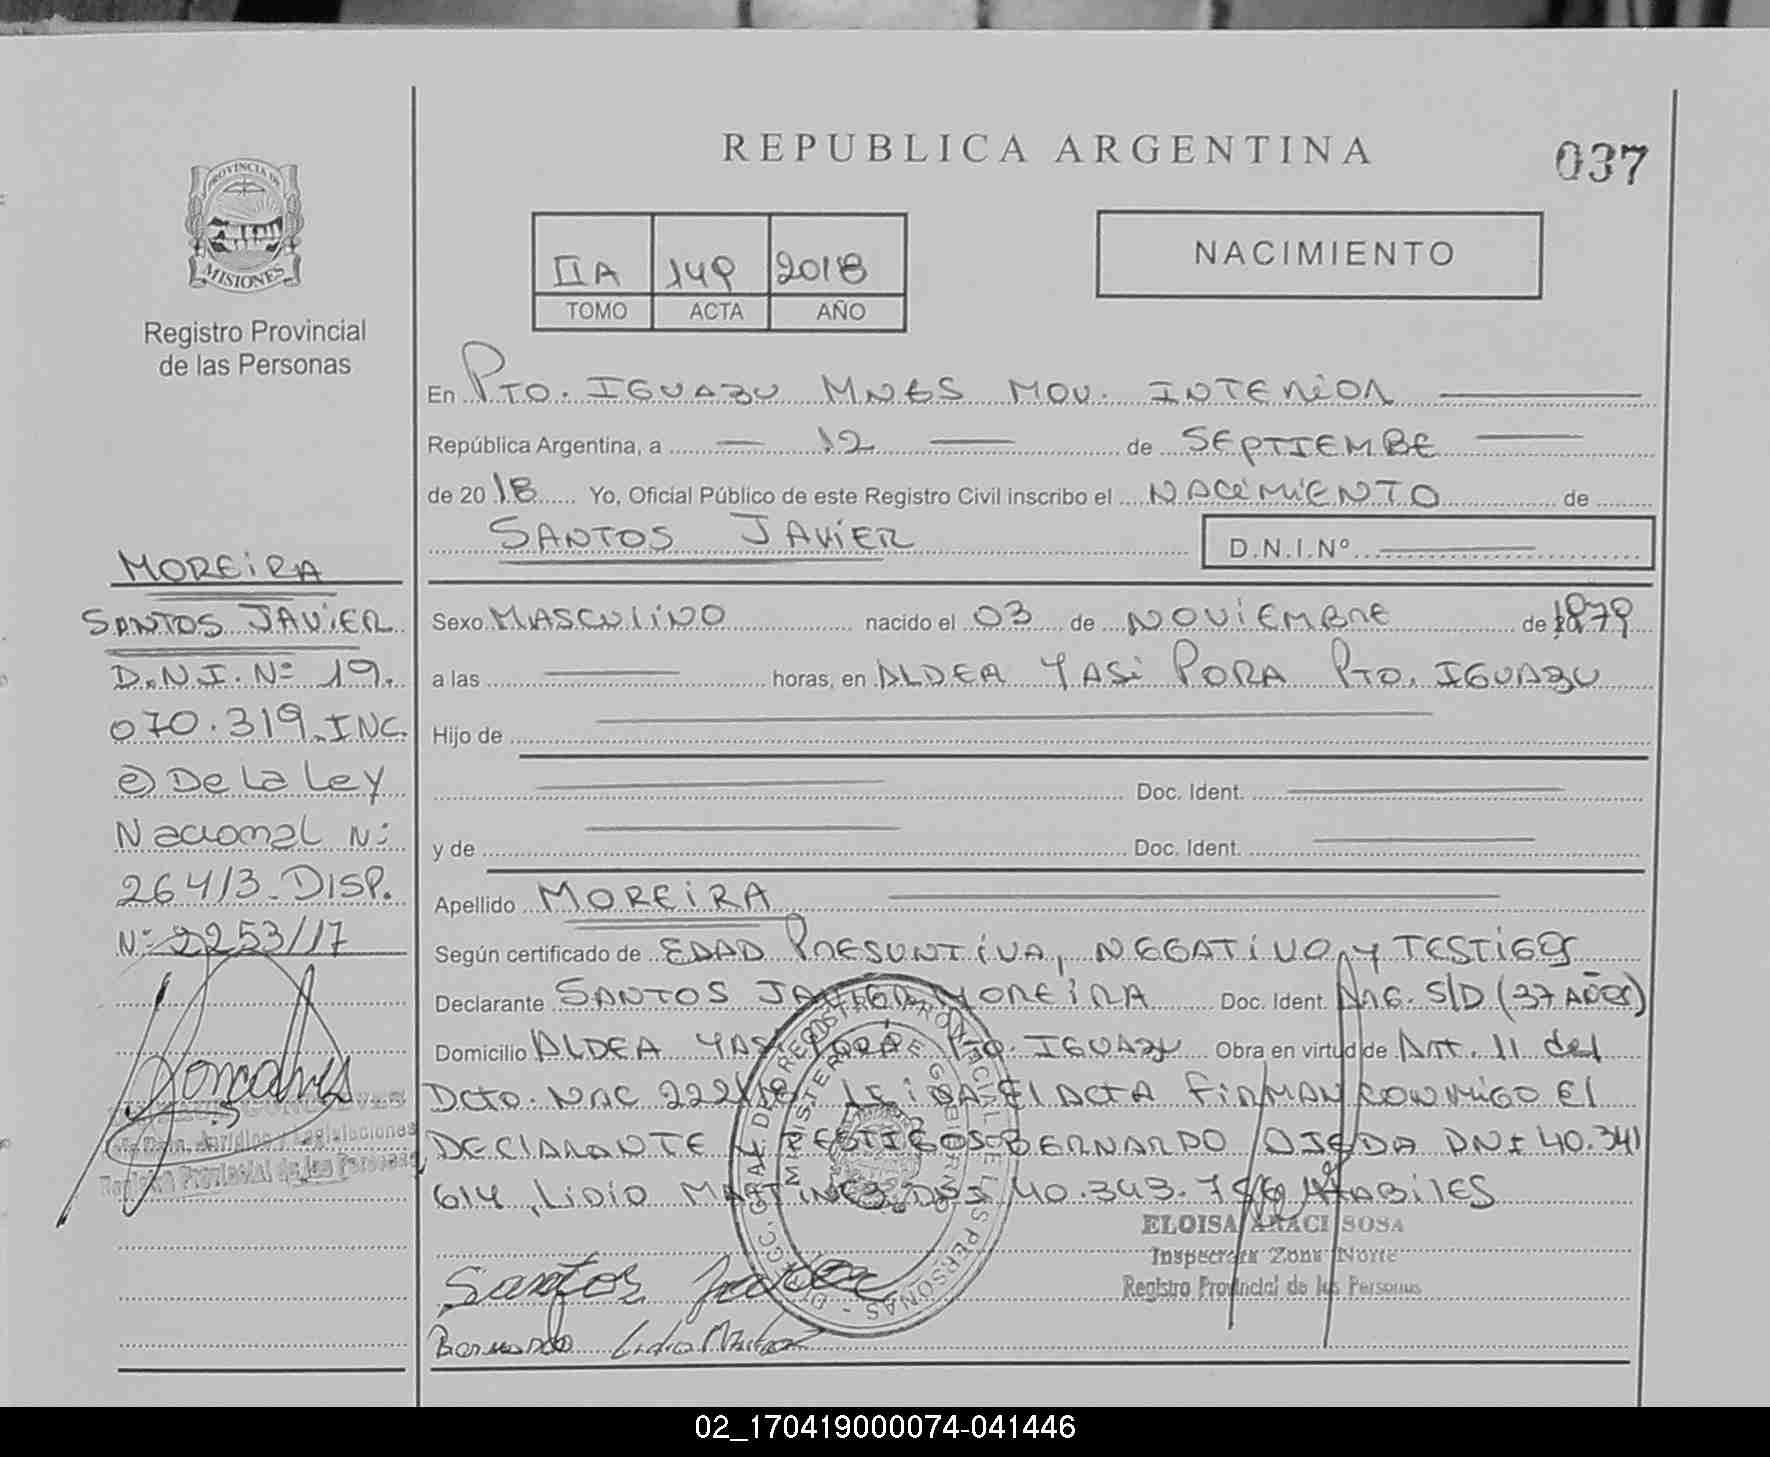 REPUBLICA ARGENTINA
037
PROVINCIA DE
MISIONES
Registro Provincial
de las Personas
IIA 149 2018
TOMO ACTA AÑO
NACIMIENTO
En PTO. IGUAZU MNES MOV. INTERIOR
República Argentina, a 12 de SEPTIEMBE
de 2018 Yo, Oficial Público de este Registro Civil inscribo el NACIMIENTO de
SANTOS JAVIER D.N.I.Nº
MOREIRA
SANTOS JAVIER
D.N.I. Nº 19.
070.319 INC.
e) De La Ley
Nacional Nº
264/13 DISP.
Nº 2253/17
Sexo MASCULINO nacido el 03 de NOVIEMBRE de 1979
a las horas, en ALDEA YASI PORA PTO. IGUAZU
Hijo de
Doc. Ident.
y de Doc. Ident.
Apellido MOREIRA
Según certificado de EDAD PRESUNTIVA, NEGATIVO Y TESTIGOS
Declarante SANTOS JAVIER MOREIRA Doc. Ident. ARG. S/D (37 AÑOS)
Domicilio ALDEA YASI PORA PTO. IGUAZU Obra en virtud de Art. 11 del
Dcto. NAC 222/18 LEIDA El ACTA FIRMAN CONMIGO El
DECLARANTE Y TESTIGOS BERNARDO OJEDA DNI 40.341
614, LIDIO MARTINEZ DNI 40.343. HABILES
ELOISA ARACI SOSA
Inspectora Zona Norte
Registro Provincial de las Personas
Santos Javier
Bernardo Lidio Martinez
GONCALVES
Dcion. Jurídica y Legislaciones
Registro Provincial de las Personas
DIREC. GRAL. DE REGISTRO PROVINCIAL DE LAS PERSONAS
MINISTERIO DE GOBIERNO
02_170419000074-041446